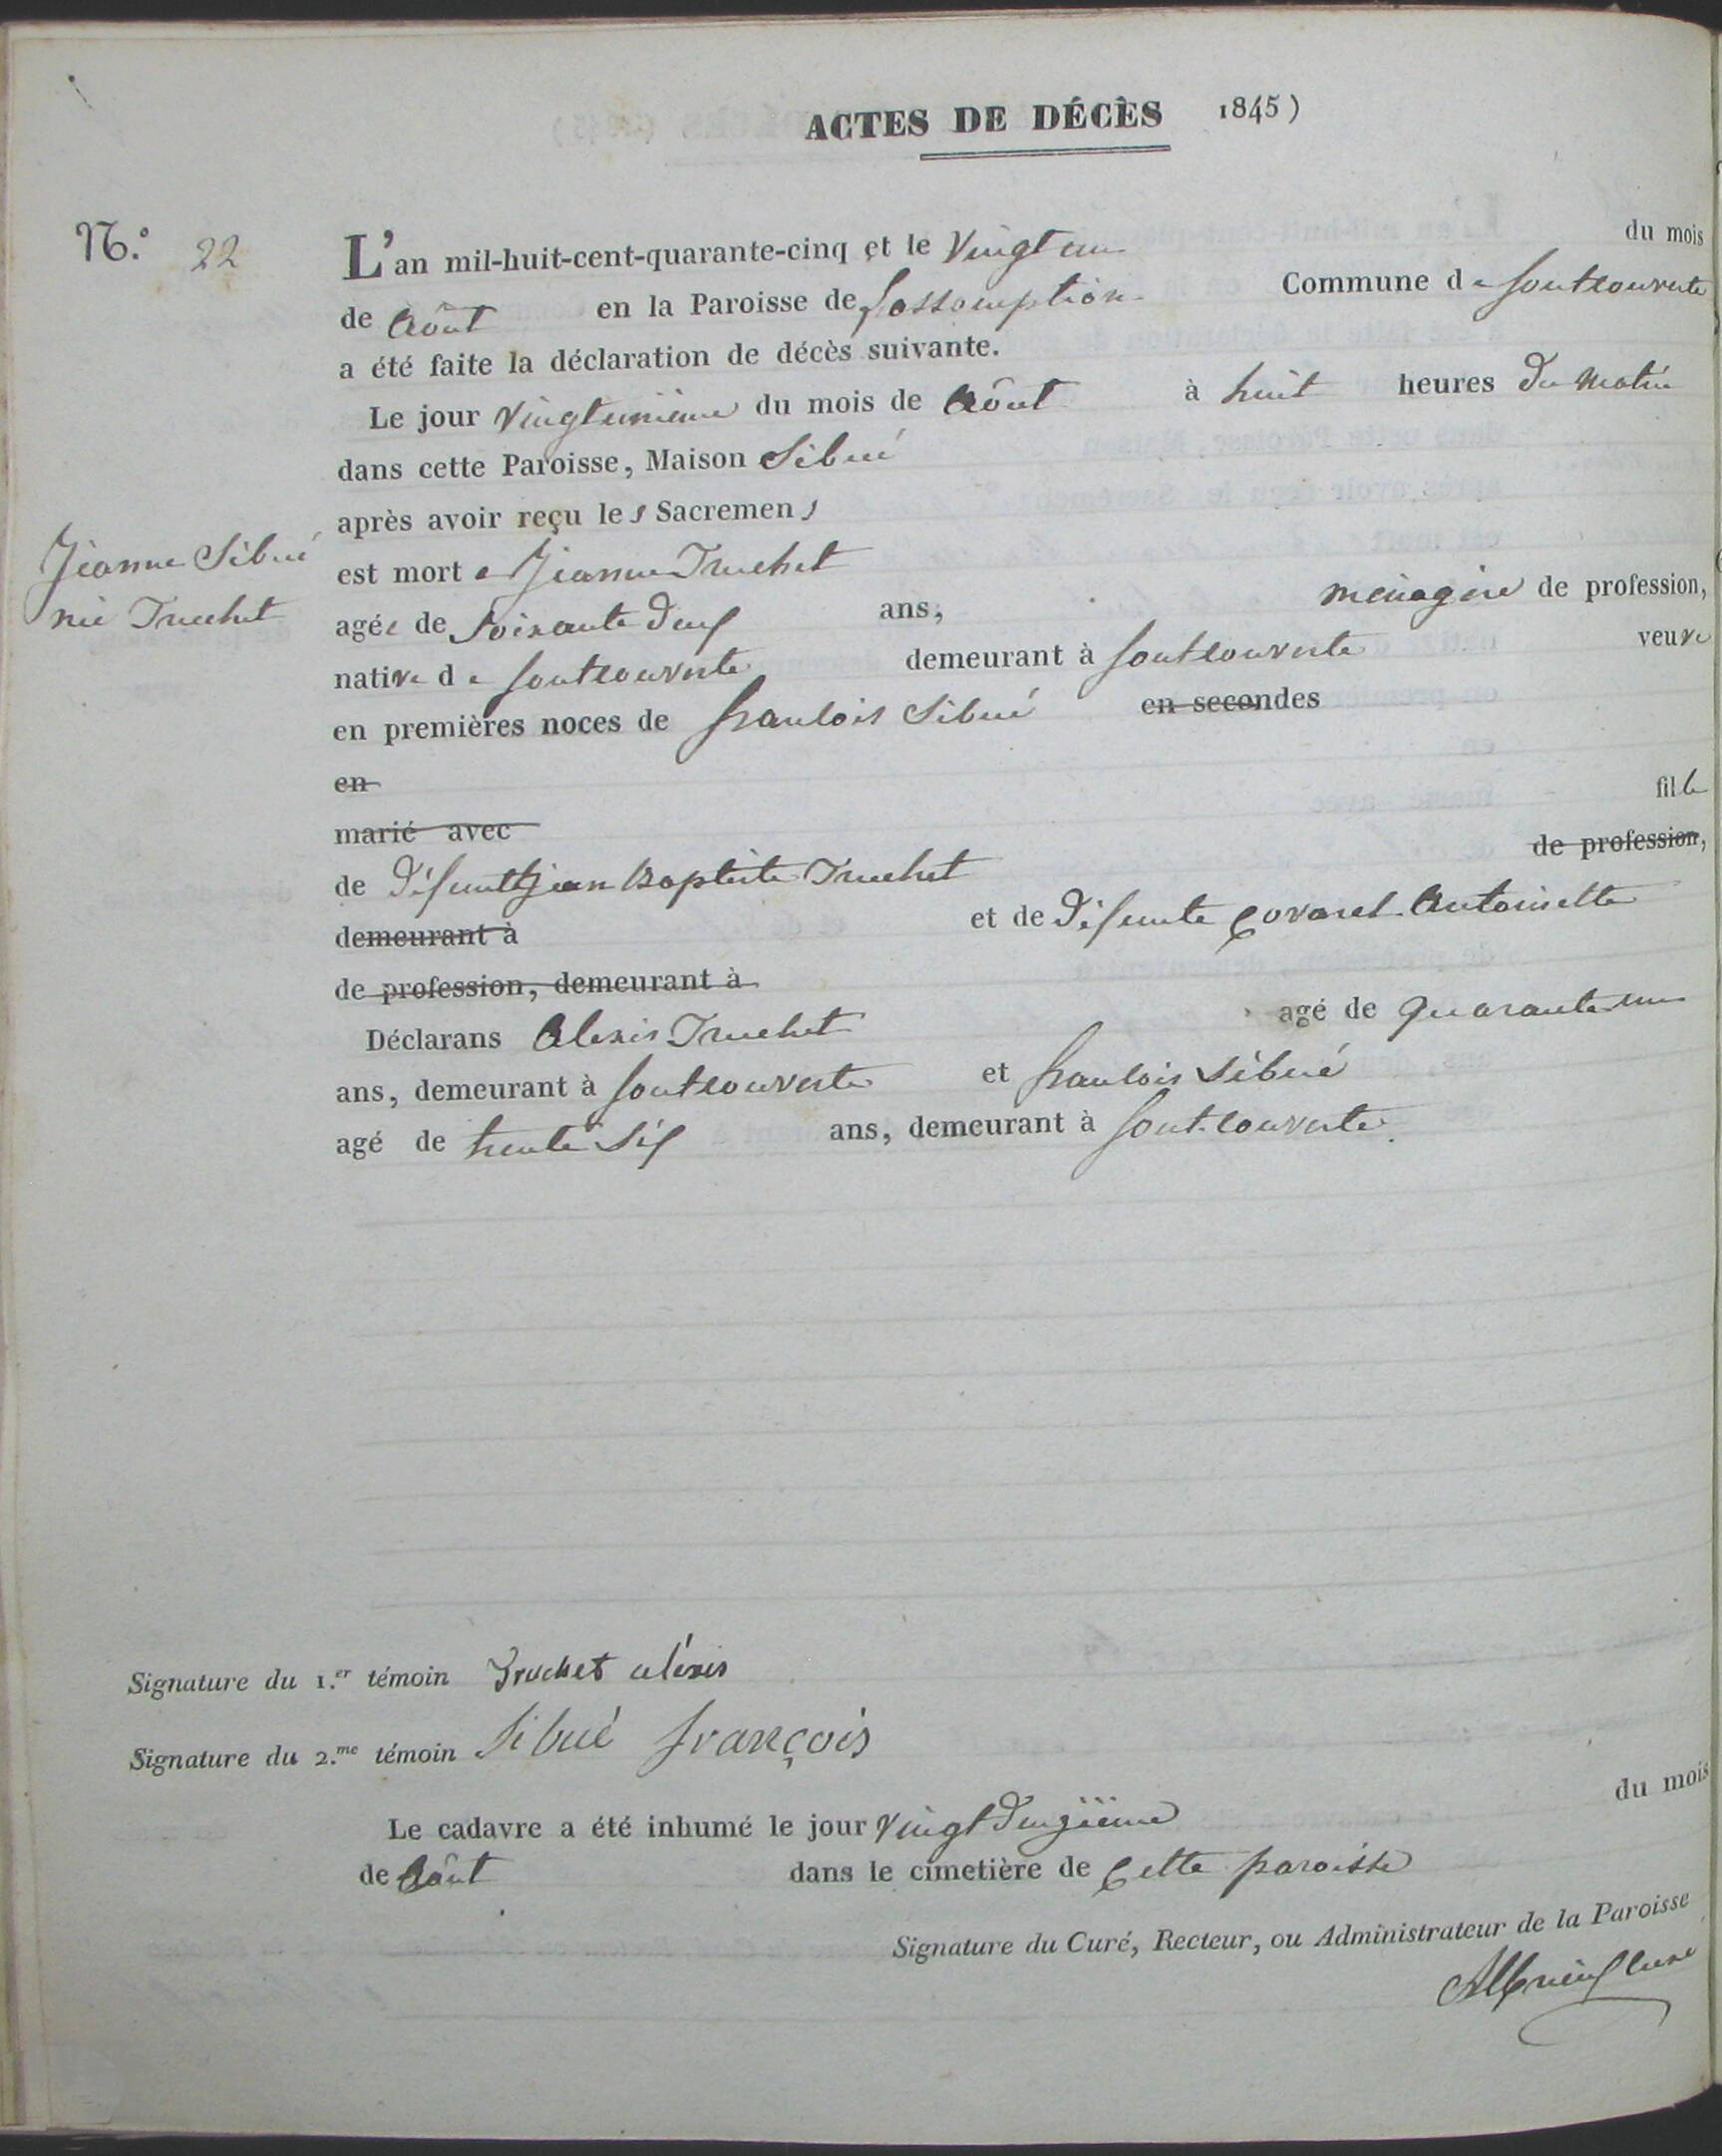 ACTES DE DÉCÈS 1845)
N.º 22
L'an mil-huit-cent-quarante-cinq et le vingt un du mois
de Août en la Paroisse de l'assomption Commune de fontcouverte
a été faite la déclaration de décès suivante.
Le jour vingtunième du mois de Août à huit heures du matin
dans cette Paroisse, Maison Sibué
après avoir reçu les Sacremens
Jeanne Sibué
née Truchet
est morte Jeanne Truchet
agée de Soixante deux ans, ménagère de profession,
native de fontcouverte demeurant à fontcouverte veuve
en premières noces de francois Sibué en secondes
en
marié avec fille
de défunt jean Baptiste Truchet de profession,
demeurant à et de défunte Covarel Antoinette
de profession, demeurant à
Déclarans Alexis Truchet agé de quarante un
ans, demeurant à fontcouverte et francois Sibué
agé de trente Six ans, demeurant à font-couverte.
Signature du 1.er témoin Truchet aléxis
Signature du 2.me témoin Sibué françois
Le cadavre a été inhumé le jour vingt deuxième du mois
de Août dans le cimetière de cette paroisse
Signature du Curé, Recteur, ou Administrateur de la Paroisse
curé